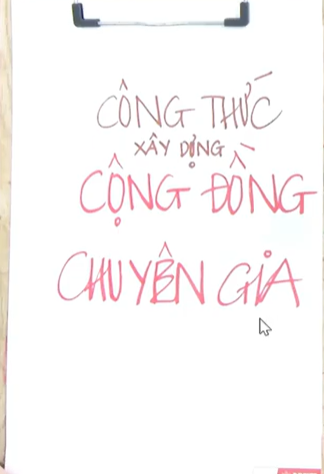 CÔNG THỨC
XÂY DỰNG
CỘNG ĐỒNG
CHUYÊN GIA